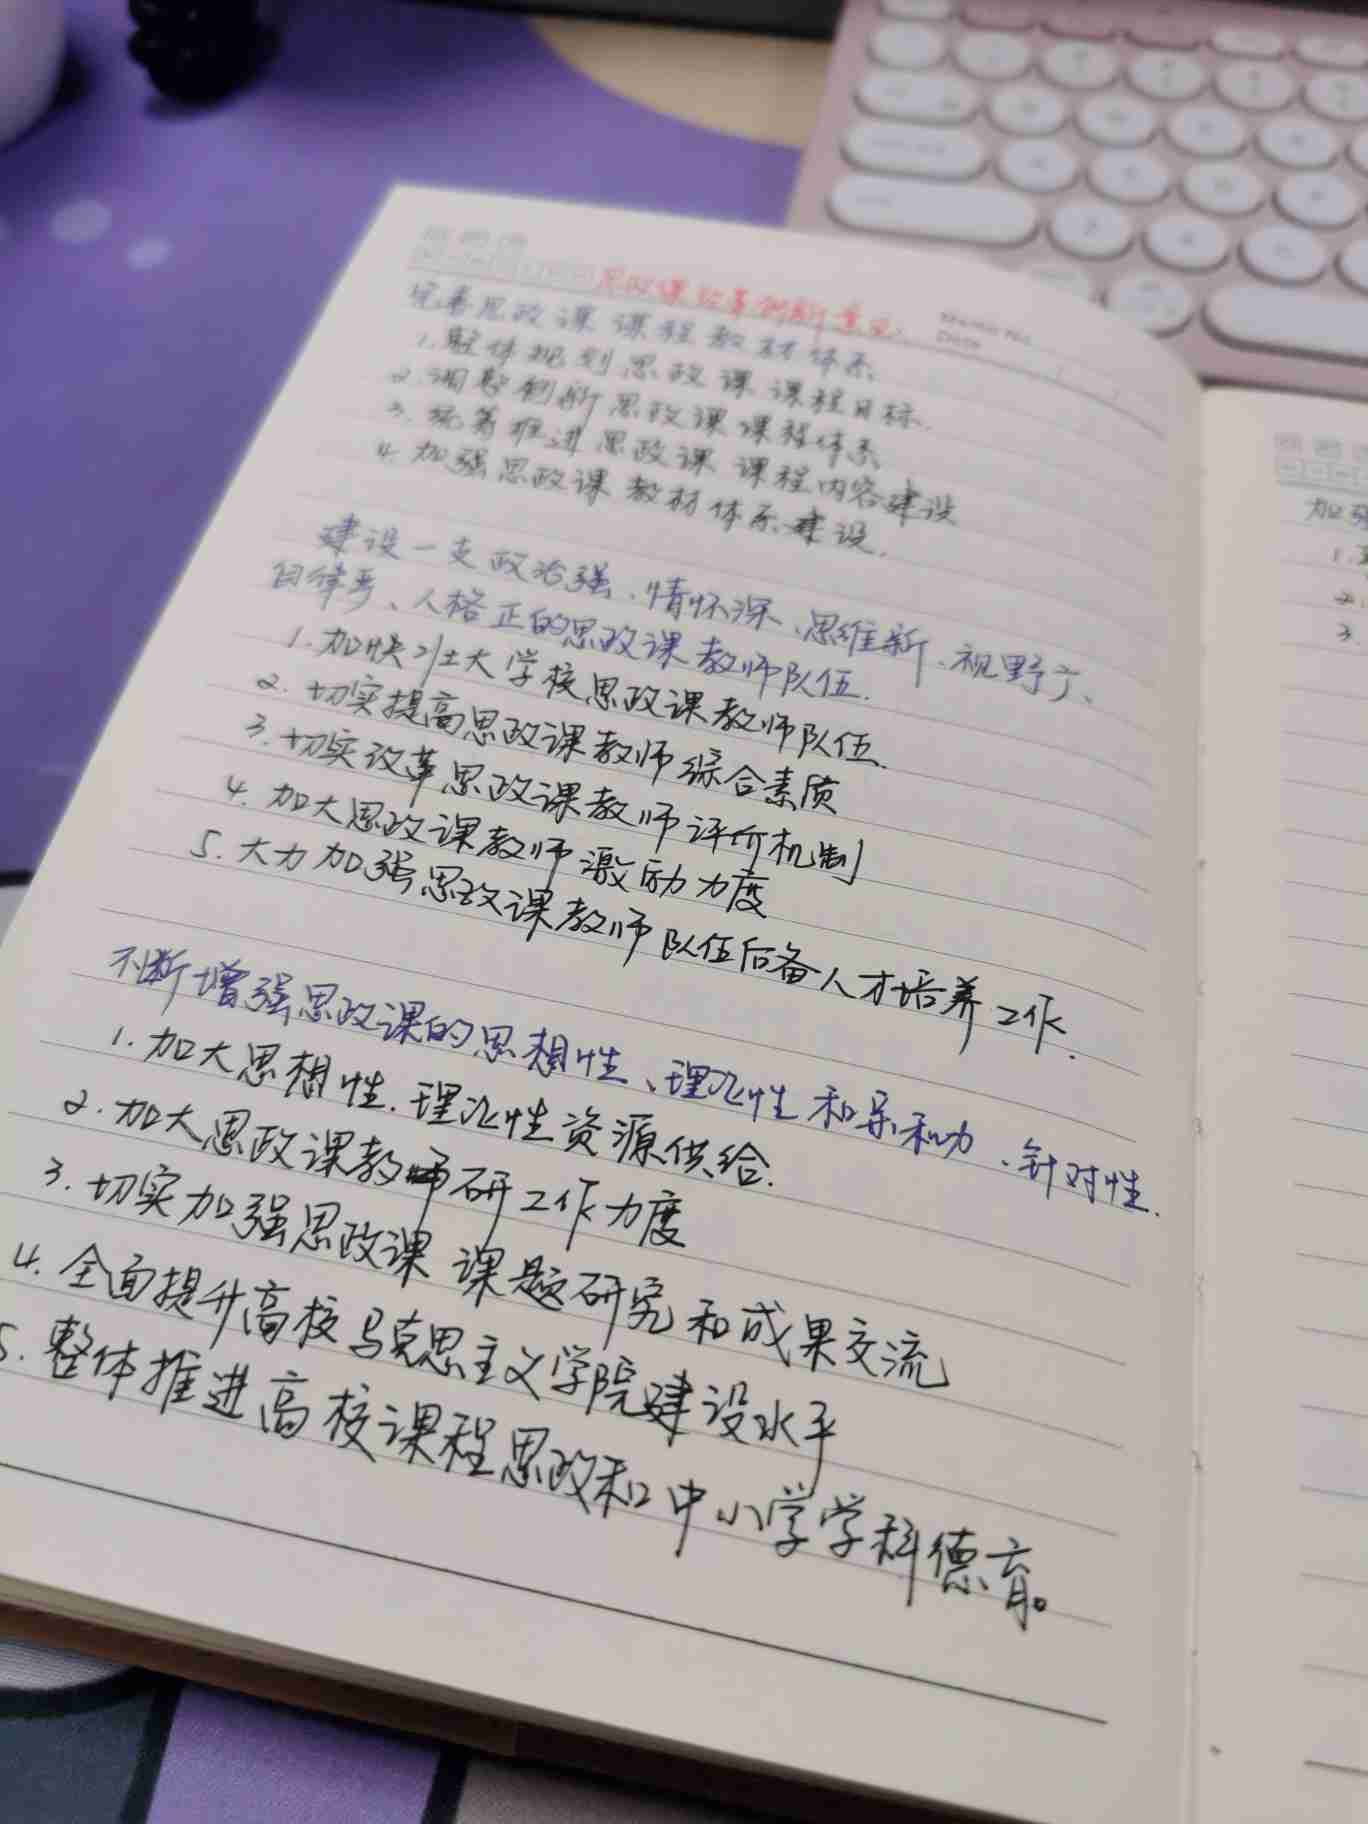 思政课改革创新意义.
Memo No.
Date
完善思政课课程教材体系
1.整体规划思政课课程目标.
2.调整创新思政课课程体系
3.统筹推进思政课课程内容建设
4.加强思政课教材体系建设.
建设一支政治强、情怀深、思维新、视野广、
自律严、人格正的思政课教师队伍.
1.加快壮大学校思政课教师队伍.
2.切实提高思政课教师综合素质
3.切实改革思政课教师评价机制
4.加大思政课教师激励力度
5.大力加强思政课教师队伍后备人才培养工作.
不断增强思政课的思想性、理论性和亲和力、针对性.
1.加大思想性.理论性资源供给.
2.加大思政课教研工作力度
3.切实加强思政课课题研究和成果交流
4.全面提升高校马克思主义学院建设水平
5.整体推进高校课程思政和中小学学科德育。
加强
1.
2.
3.